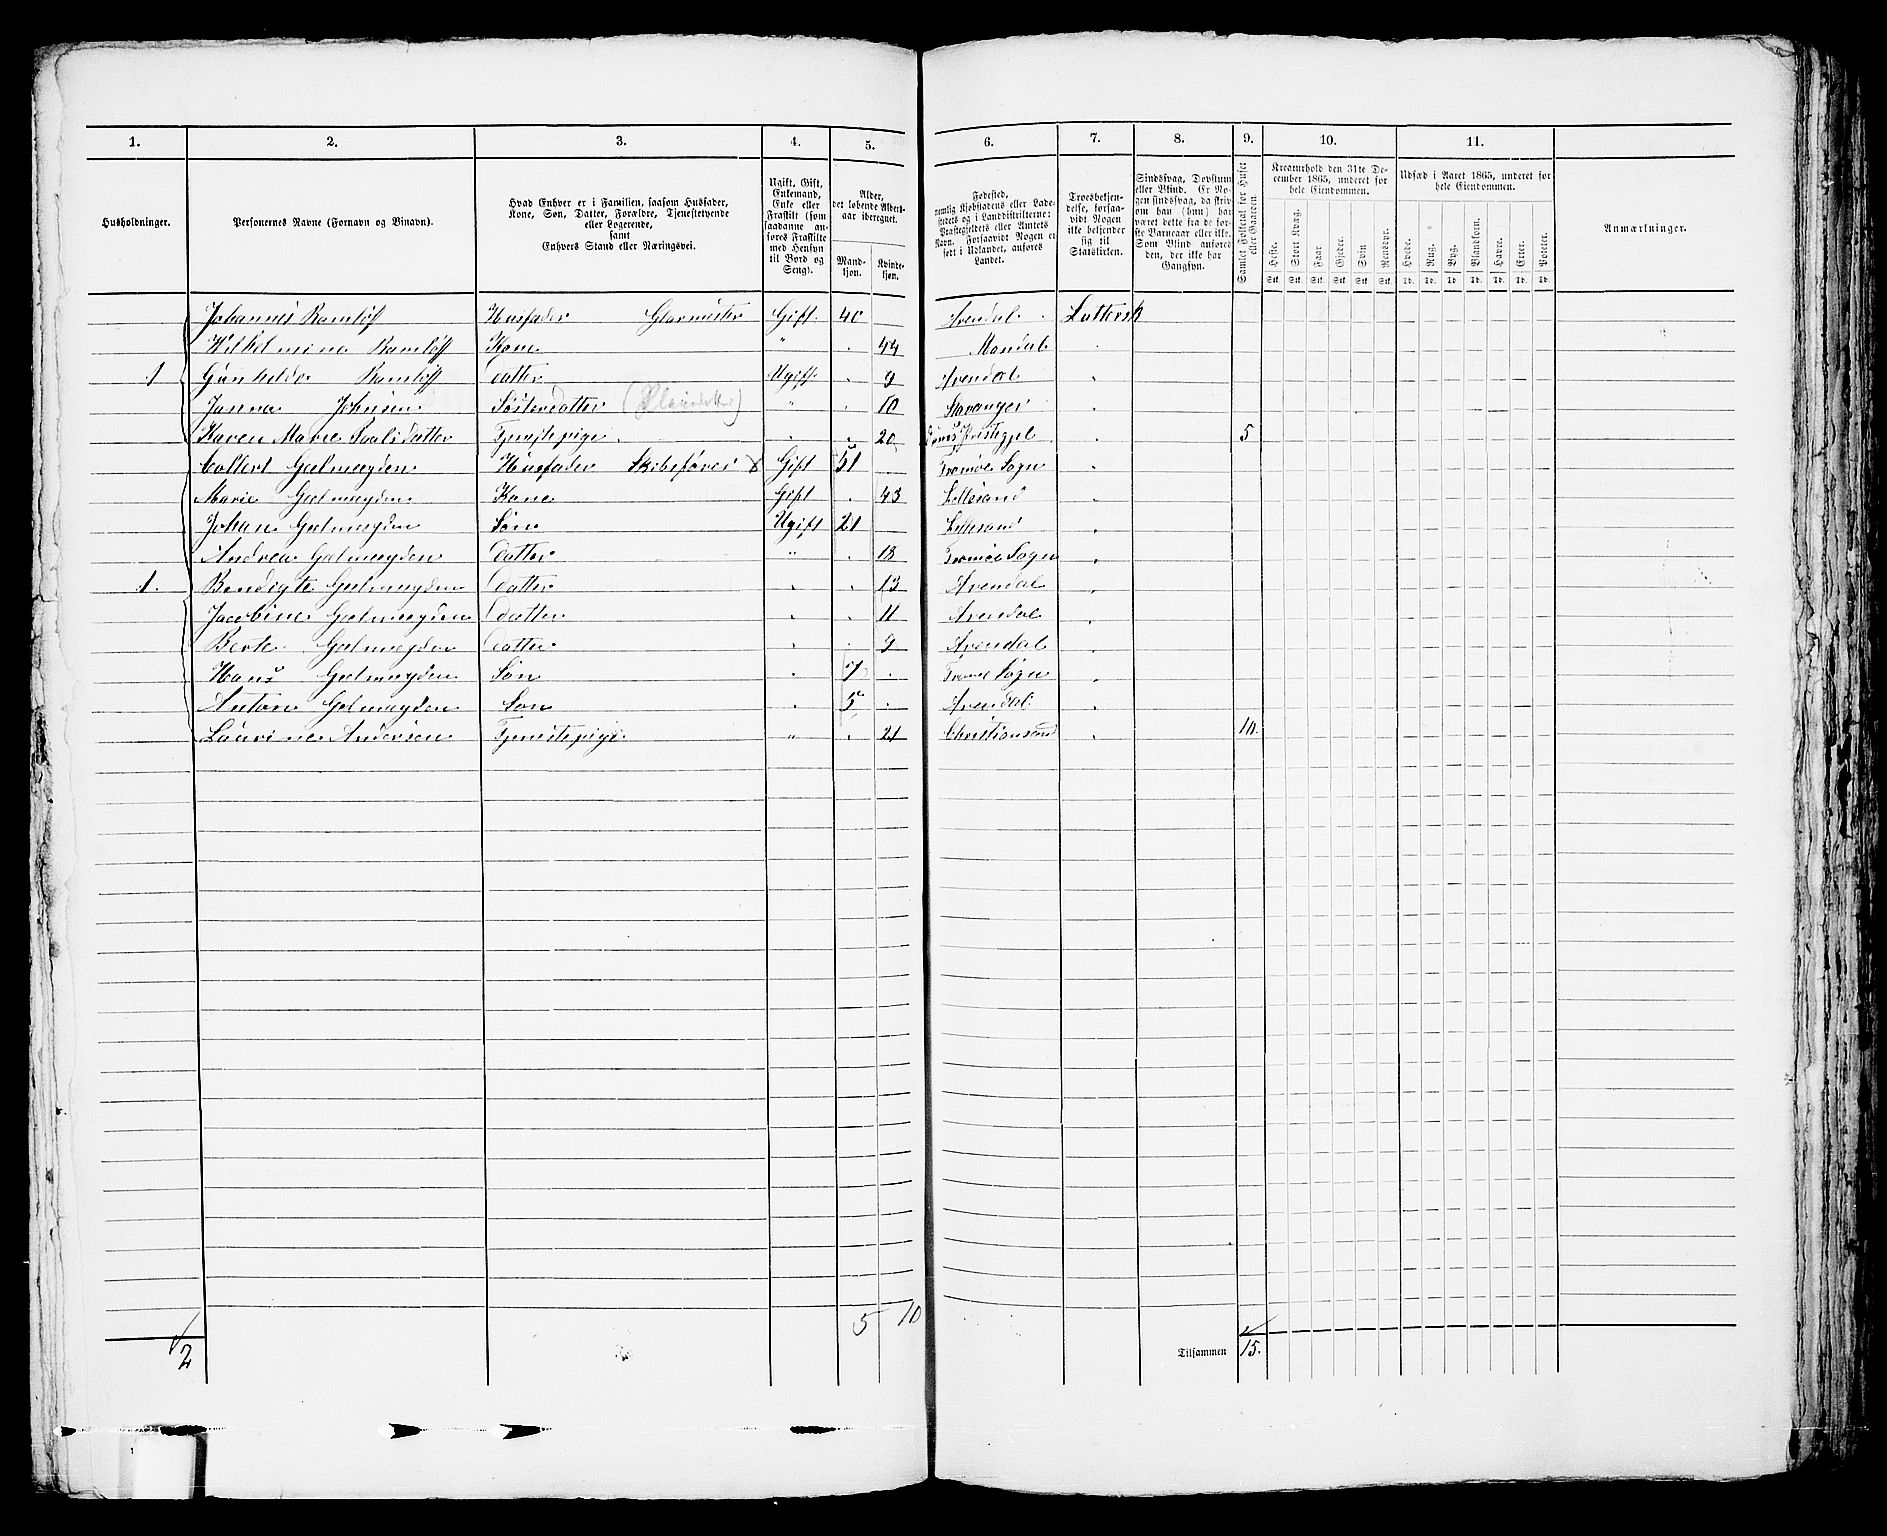 1. 2. 3. 4. 5. 6. 7. 8. 9. 10. 11.
Husholdninger.
Personernes Navne (Fornavn og Binavn).
Hvad Enhver er i Familien, saasom Husfader,
Kone, Søn, Datter, Forældre, Tjenestetyende
eller Logerende,
samt
Enhvers Stand eller Næringsvei.
Ugift, Gift,
Enkemand,
Enke eller
Fraskilt (som
saadanne an-
føres Fraskilte
med Hensyn
til Bord og
Seng).
Alder,
det løbende Alders-
aar iberegnet.
Mand-
kjøn.
Kvinde-
kjøn.
Fødested,
nemlig Kjøbstadens eller Lade-
stedets og i Landdistrikterne:
Præstegjeldets eller Amtets
Navn. Forsaavidt Nogen er
født i Udlandet, anføres
Landet.
Troesbekjen-
delse, forsaa-
vidt Nogen
ikke bekjender
sig til
Statskirken.
Sindssvag, Døvstum
eller Blind. Er No-
gen sindssvag, da skriv
om han (hun) har
været dette fra de før-
ste Barneaar eller ikke.
Som Blind anføres
den, der ikke har
Gangsyn.
Samlet Folketal for Huset
eller Gaarden.
Kreaturhold den 31te De-
cember 1865, underet for
hele Eiendommen.
Heste. Stort Kvæg. Faar Gjeder. Svin Rensdyr.
Stk. Stk. Stk. Stk. Stk. Stk.
Udsæd i Aaret 1865, underet for
hele Eiendommen.
Hvede. Rug. Byg. Blandkorn. Havre. Erter. Poteter.
Td. Td. Td. Td. Td. Td. Td.
Anmærkninger.
Johannes Ramløff Husfader Glarmester Gift 40 Arendal. Luthersk
Wilhelmine Ramløff Kone " . 44 Mandal .
1 Gunhilde Ramløff Datter Ugift . 9 Arendal .
Janna Johnsen Søsterdatter (Pleiedatter) " . 10 Stavanger .
Karen Marie Poulsdatter Tjenestepige . . 20 . 5
Collert Gjelmeyden Husfader Skibsfører x Gift 51 Tromøe Sogn .
Marie Gjelmeyden Kone Gift . 43 Lillesand .
Johan Gjelmeyden Søn Ugift 21 Lillesand .
Andrea Gjelmeyden Datter " . 18 Tromøe Sogn .
1. Bendigte Gjelmeyden Datter . . 13 Arendal .
Jacobine Gjelmeyden Datter . . 11 Arendal .
Berte Gjelmeyden Datter . . 9 Arendal .
Hans Gjelmeyden Søn . 7 . Tromøe Sogn .
Anton Gjelmeyden Søn . 5 . Arendal .
Laurine Andersen Tjenestepige " . 21 Christiansand . 10.
2 5 10 Tilsammen 15.